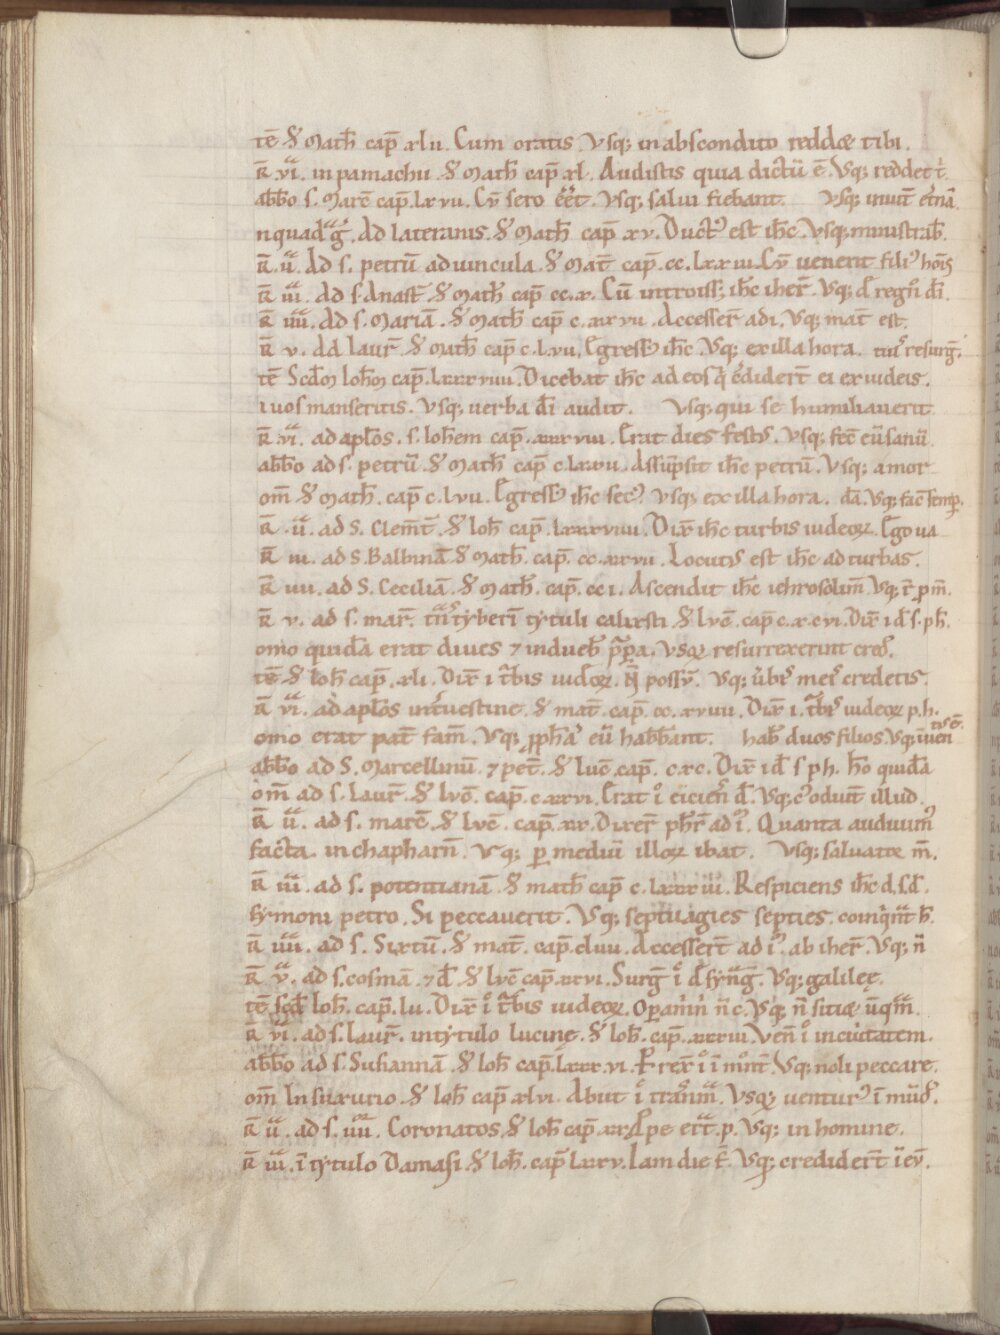 tē. S̄. Math̄ cap̄ xlii. Cum oratis Vsq; in abscondito reddæ tibi.
F̄. vi. in pamachii. S̄ Math̄ cap̄ xl. Audistis quia dictū ē. Vq; reddet t̄.
abbo s. Marc̄ cap̄. lxvii. Cū sero eēt. Vsq; salui fiebant. Vsq; inuit̄ et̄nā.
n quadḡ. Ad lateranis. S̄ Math̄ cap̄ xv. Duct' est ih̄c. Vsq; ministrab̄.
F̄. ii. Ad s. petrū ad uincula. S̄ Mat̄ cap̄. cc. lxxiii. Cū uenerit fili' hoīs
F̄. iii. Ad s. Anast̄. S̄ Math̄ cap̄ cc. x. Cū introiss; ih̄c iher̄. Vq; d̄ regn̄ dī.
F̄. iiii. Ad s. Mariā. S̄ Math̄ cap̄ c. xxvii. Accesser̄ ad i. Vq; mat̄ est.
F̄. v. Ad laur̄. S̄ Math̄ cap̄ c. lvii. Egress' ih̄c. Vq; ex illa hora. resurḡ.
tē Scdm Ioh̄m cap̄. lxxxviiii. Dicebat ih̄c ad eos q̄ c̄dider̄t ei ex iudeis.
i uos manseritis. Vsq; uerba dī audit. Vsq; qui se humiliauerit.
F̄. vi. ad apl̄os. s. Ioh̄em cap̄. xxxviii. Erat dies fest'. Vsq; fec̄ eū sanū.
abbo ad s. petrū. S̄ Math̄ cap̄ c. lxxii. Assūpsit ih̄c petrū. Vsq; a mor
om̄ S̄ Math̄. cap̄ c. lvii. Egress' ih̄c sec' Vsq; ex illa hora. dā. Vq; fac̄ semp̄.
F̄. ii. ad S. Clem̄t̄. S̄ Ioh̄ cap̄. lxxxviiii. Dix̄ ih̄c turbis iudeoꝝ. Ego ua
F̄. iii. ad S. Balbinā S̄ Math̄. cap̄. cc. xxvii. Locut' est ih̄c ad turbas.
F̄. iiii. ad S. Ceciliā. S̄ Math̄. cap̄. cc i. Ascendit ih̄c iehrosolim̄. Vq; r̄ p m̄.
F̄. v. ad s. mar̄. tn̄styberī tytuli calixsti. S̄ Lvc̄. cap̄ c. xcvi. Dix̄ i d̄ s. ph̄.
omo quidā erat diues ⁊ indueb̄ p̄p̄a. Vsq; resurrexerint cred̄.
tē. S̄ Ioh̄ cap̄. xli. Dix̄ i t̄bis iudeoꝝ. N̄ possū. Vq; ūbis meis credetis.
F̄. vi. ad apl̄os in t̄uestine. S̄ mat̄. cap̄. cc. xviiii. Dix̄ i. t̄bis iudeoꝝ p. h.
omo erat pat̄ fam̄. Vq; p̄ph̄a eū habbant. hab̄ duos filios. Vq; inuen
abbo ad S. Marcellinū. ⁊ pet̄. S̄ Luc̄. cap̄. c. xc. Dix̄ i d̄ s ph. ho quidā
om̄ ad s. Laur̄. S̄ Lvc̄. cap̄. c. xxvi. Erat i eicien̄ d̄. Vq; c'odiut̄ illud.
F̄. ii. ad s. marc̄. S̄ Lvc̄. cap̄. xx. Dixer̄ ph̄r̄ ad i. Quanta audiuim'
facta. in chapharn̄. Vq; p̄ mediū illoꝝ ibat. Vsq; saluatæ m̄.
F̄. iii. ad s. potentianā. S̄ math̄ cap̄ c. lxxxiii. Respiciens ih̄c d. s. d̄.
symoni petro. Si peccauerit. Vq; septuagies septies. coinq̄nāt h̄.
F̄. iiii. ad s. Sixtū. S̄ mat̄. cap̄. clvii. Accesser̄t ad i. ab iher̄. Vq; n̄
F̄. v. ad s. cosmā. ⁊ d̄. S̄ Lvc̄ cap̄. xxvi. Surḡ i d̄ synaḡ. Vq; galileę.
tē scd̄ Ioh̄. cap̄. lv. Dix̄ i t̄bis iudeoꝝ. Operamini n̄ c. Vq; n̄ sitiæ ūq̄m̄.
F̄. vi. ad s. Laur̄. in tytulo lucine. S̄ Ioh̄. cap̄. xxxiii. Ven̄ i in ciuitatem.
abbo ad s. Susannā. S̄ Ioh̄ cap̄. lxxxvi. P rex̄ i ī mōt̄. Vq; noli peccare.
om̄ In suxurio. S̄ Ioh̄ cap̄ xlvi. Abiit i trānm̄. Vsq; uentur' ī mūd̄.
F̄. ii. ad s. iiii. Coronatos. S̄ Ioh̄ cap̄ xx. P pe erāt. p. Vq; in homine.
F̄. iii. ī tytulo Damasi. S̄ Ioh̄. cap̄ lxxv. Iam die f̄. Vq; credider̄t ī eū.